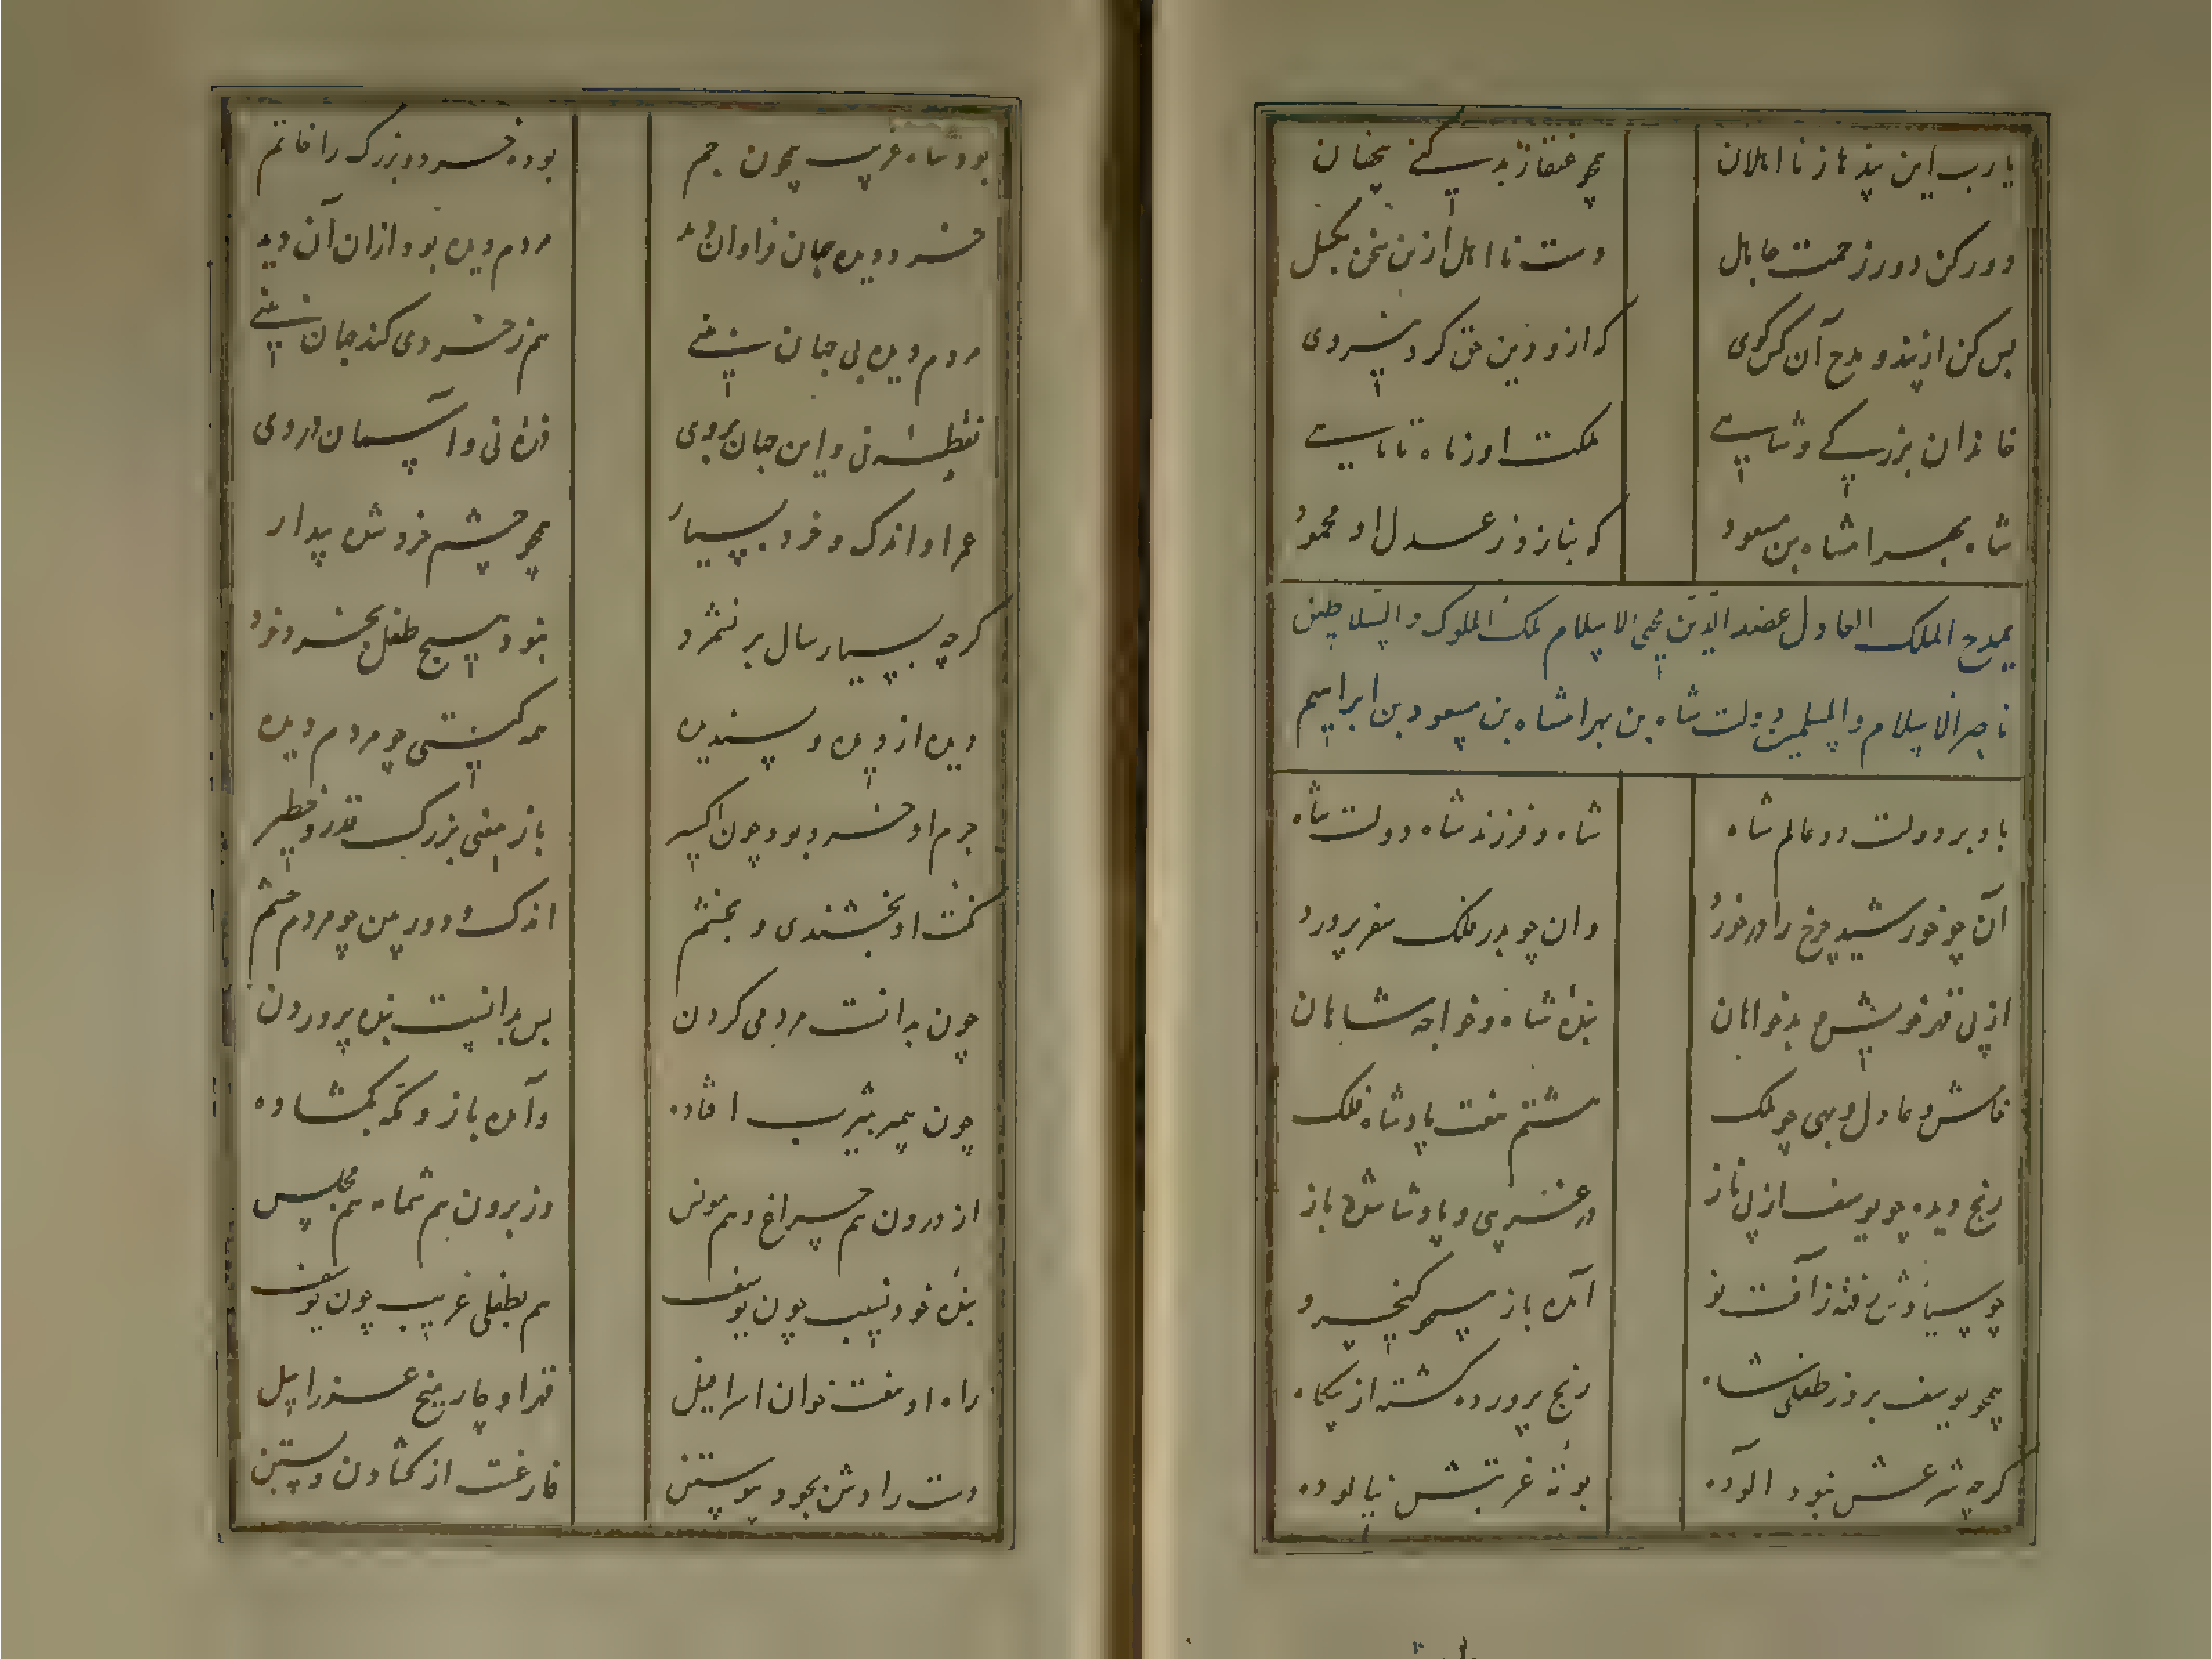 یارب این پندها ز نااهلان همچو عنقا ز بد کنی پنهان
دور کن دور ز حمت جاهل دست نااهل ازین سخن بگسل
بس کن از پند و مدح آن کس گوی که ازو دین حق گرد نیروی
خاندان بزرگی و شاهی ملکت او ز ماه تا ماهی
شاه بهرامشاه بن مسعود که بنازد ز عدل او محمود
یمدح الملک العادل عضد الدین محیی الاسلام ملک الملوک والسلاطین
ناصر الاسلام والمسلمین دولت شاه بن بهرامشاه بن مسعود بن ابراهیم
باد بر دولت دو عالم شاه شاه و فرزند شاه دولت شاه
آن چو خورشید چرخ را درخورد وان چو بدر فلک سفرپرورد
از پی قهر خویش و بدخواهان بندهٔ شاه و خواجه شاهان
فاش و عادل و بهی چو ملک هشتم هفت پادشاه فلک
رنج دیده چو یوسف از پی ناز در غریبی و پادشا شده باز
چو سیاوش رفته ز آفت نو آمده باز همچو کیخسرو
همچو یوسف بروز طفلی شاه رنج پرورده گشته از یکماه
گرچه شرعش نبود آلوده بوتهٔ غربتش نپالوده
بود شاه غریب همچون جم بوده خرد و بزرگ را خاتم
خرد دیده جهان فراوان دید مردم دیده بود ازان آن دید
مردم دیده بی جهان بینی هم ز خردی کند جهان بینی
نقطهٔ نی و این جهان بروی ذرهٔ نی و آسمان در وی
عمر او اندک و خرد بسیار همچو چشم خرد شده بیدار
گرچه بسیار سال برنشمرد نبود هیچ طفل بخرد خرد
دیده از دیده و پسندیده همه گیتی چو مردم دیده
جرم او خرد بود چون اکسیر باز معنی بزرگ قدر و خطیر
گفت او بخشندی و بخشم اندک و دوربین چو مردم چشم
چون بدانست مردمی کردن پس بدانست بنده پروردن
چون پیمبر بیثرب افتاده وآمده باز و مکه بگشاده
از درون هم چراغ و هم مونس وز برون هم شاه هم مجلس
بندهٔ خود نسیب چون یوسف هم بطفلی غریب چون یوسف
راه او هفت خوان اسرافیل قهر او چار میخ عزرائیل
دست رادش بجود پیوستن فارغست از گشادن و بستن